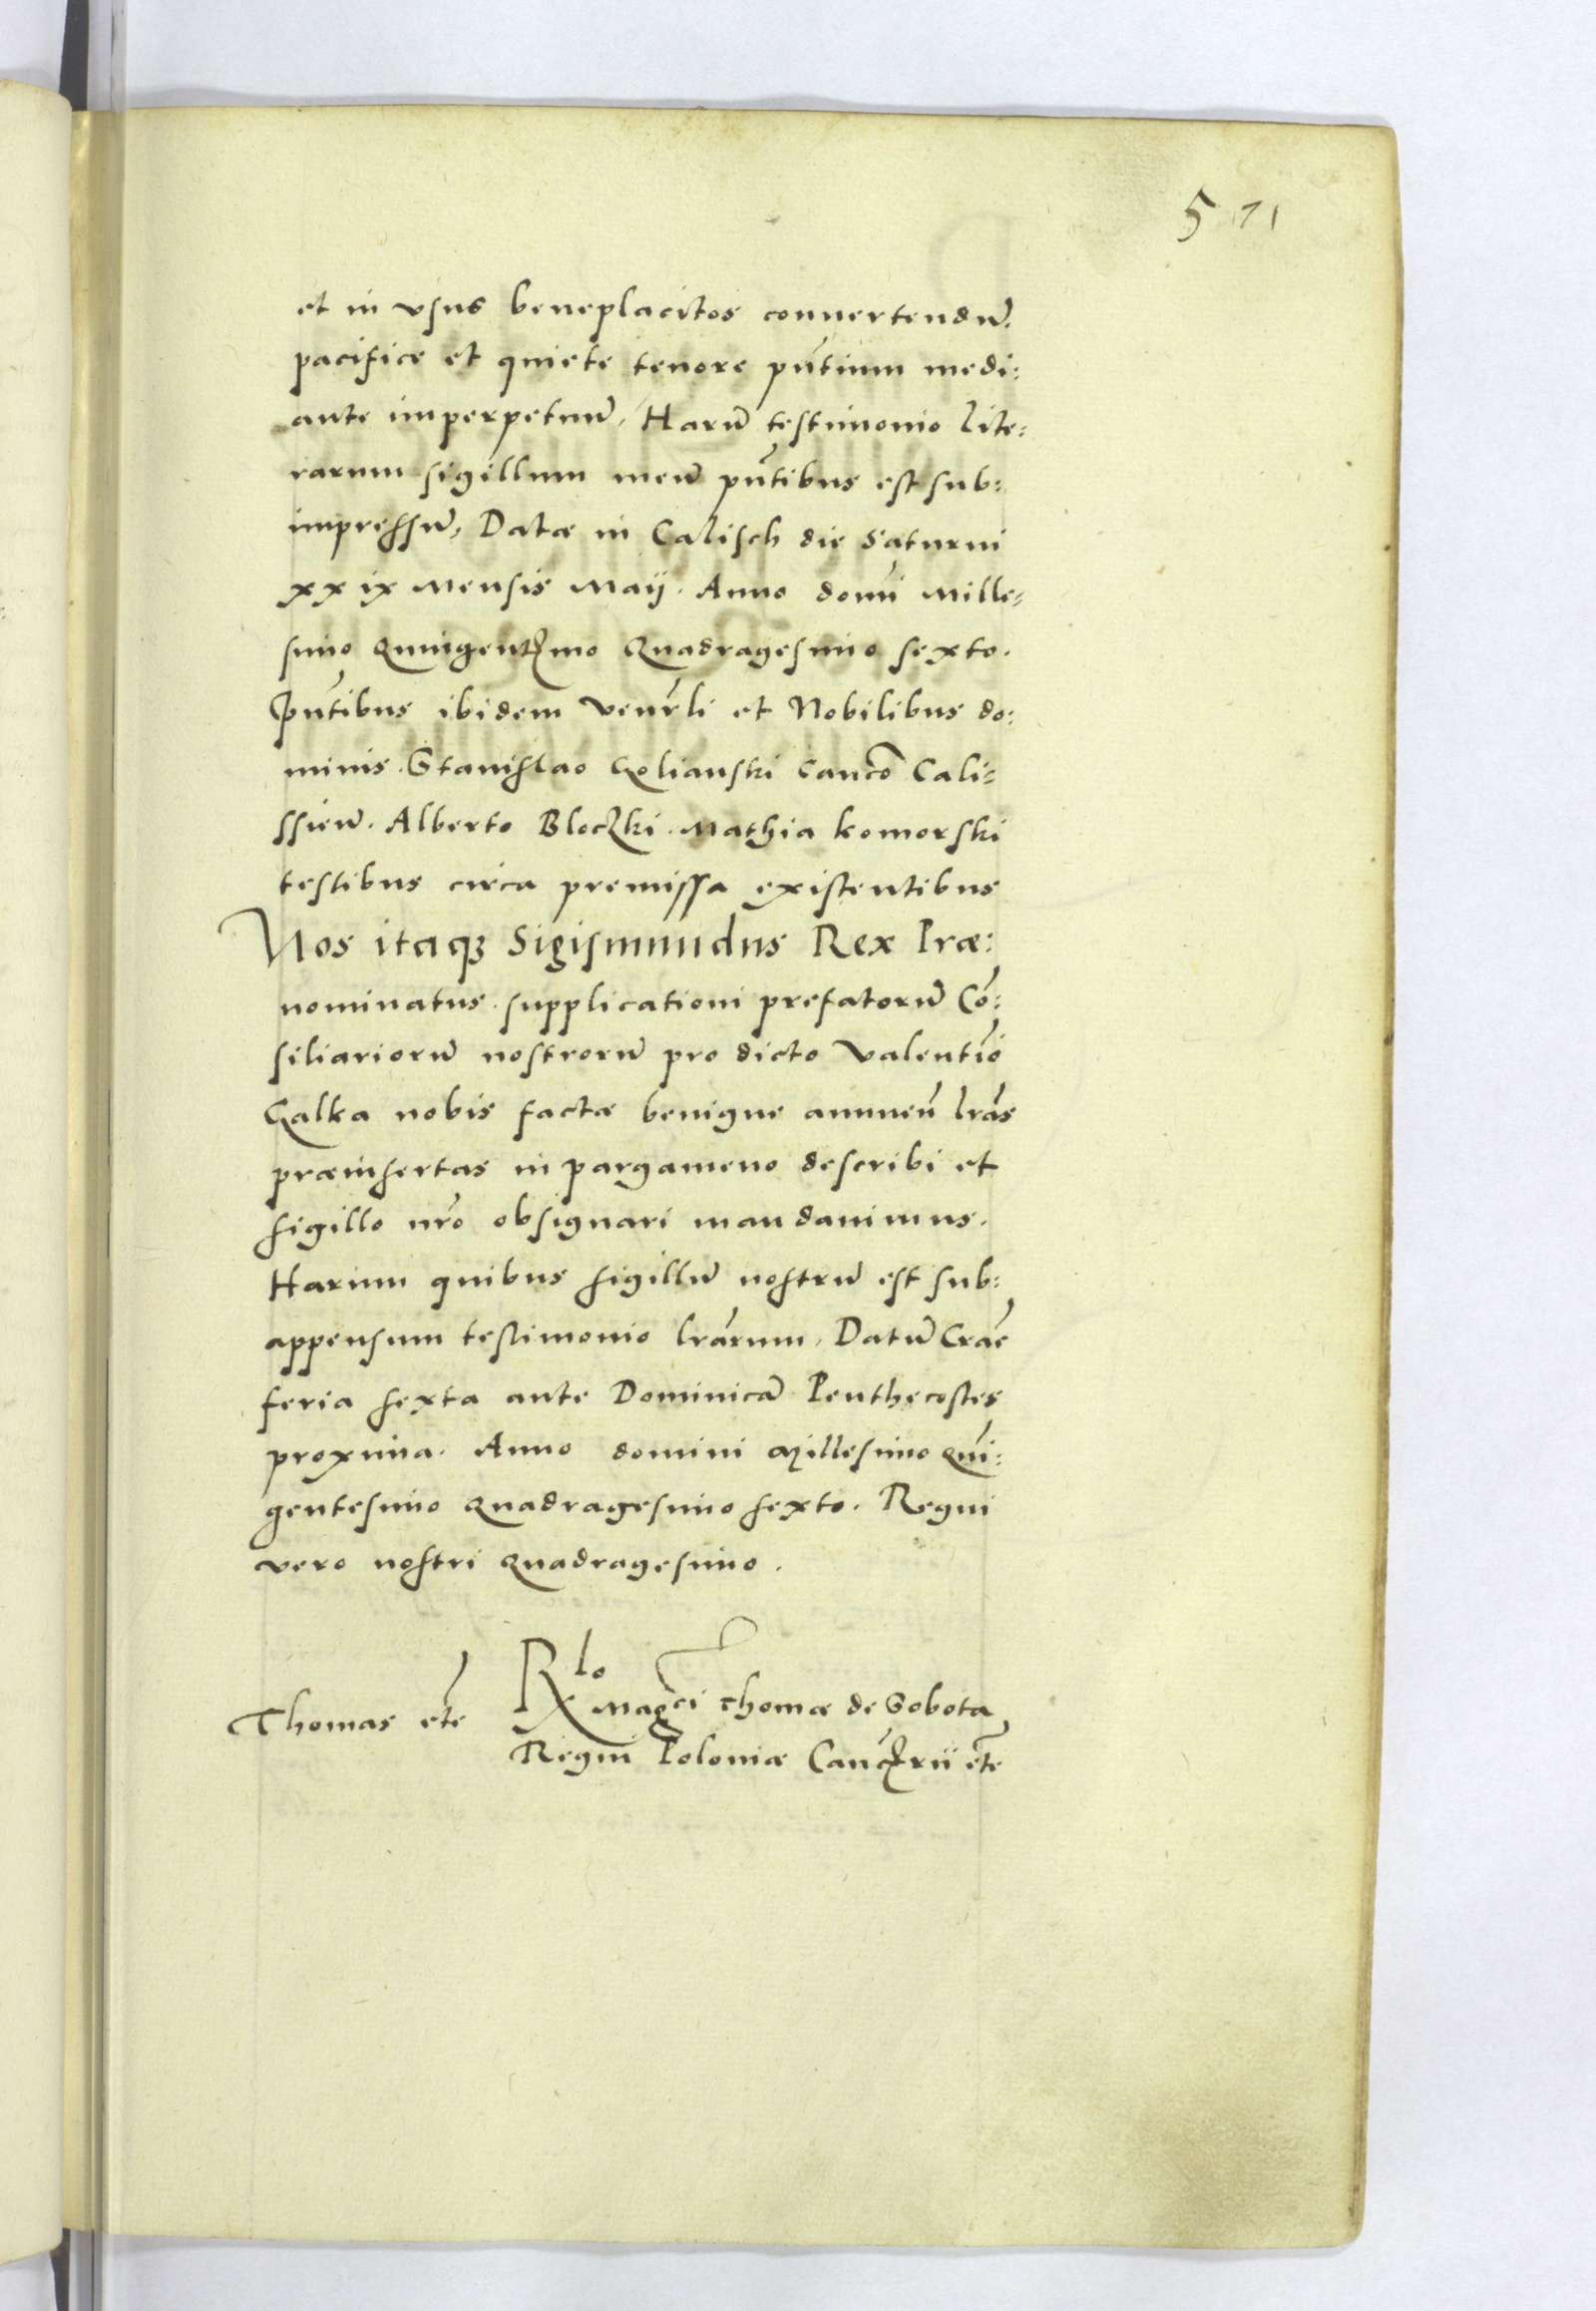 571
et in vsus beneplacitos conuertendū.
pacifice et quiete tenore pn̄tium medi:
ante imperpetuū, Harū testimonio lite:
rarum sigillum meū pn̄tibus est sub:
impressū, Datæ in Calisch die Saturni
xx ix mensis Maij. Anno domī mille:
simo quingentmo quadragesimo sexto.
Pn̄tibus ibidem venrli et Nobilibus do:
minis. Stanislao Golianski Cancō Cali:
ssień. Alberto Bloczki. Mathia Komorski
testibus circa premissa existentibus
Nos itaqꝫ Sigismundus Rex Præ:
nominatus. supplicationi prefatorū Cō:
siliariorū nostrorū pro dicto Valentīo
Galka nobis factæ benigne annueń lrās
præinsertas in pargameno describi et
sigillo nrō obsignari mandauimus.
Harum quibus sigillū nostrū est sub:
appensum testimonio lrārum, Datū Craē
feria sexta ante Dominicā Penthecostes
proxima. Anno domini Millesimo Quī:
gentesimo quadragesimo sexto. Regni
vero nostri quadragesimo.
Thomas etc̄ Rlo Magci Thomæ de Sobota
Regni Poloniæ Cancrii etc̄